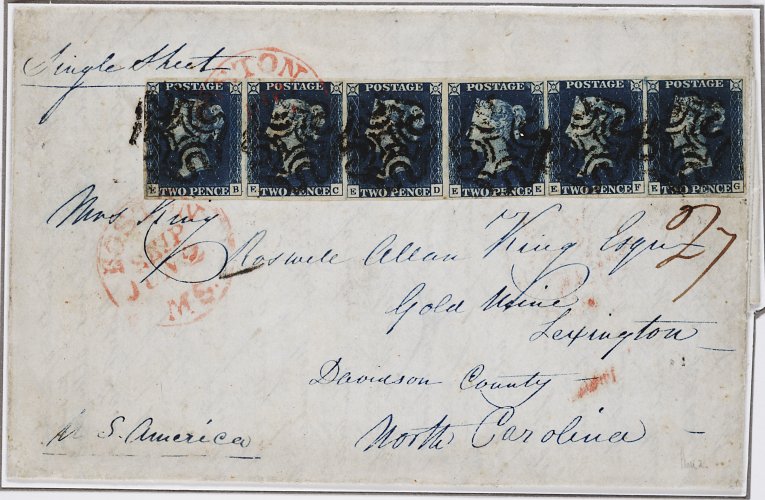 Single Sheet
TON
POSTAGE POSTAGE POSTAGE POSTAGE POSTAGE POSTAGE
E TWO PENCE B E TWO PENCE C E TWO PENCE D E TWO PENCE E E TWO PENCE F E TWO PENCE G
Mrs King
Roswell Allan King Esqr
27
BOS
SHIP
MS.
Gold Mine
Lexington
Davidson County
North Carolina
S. America